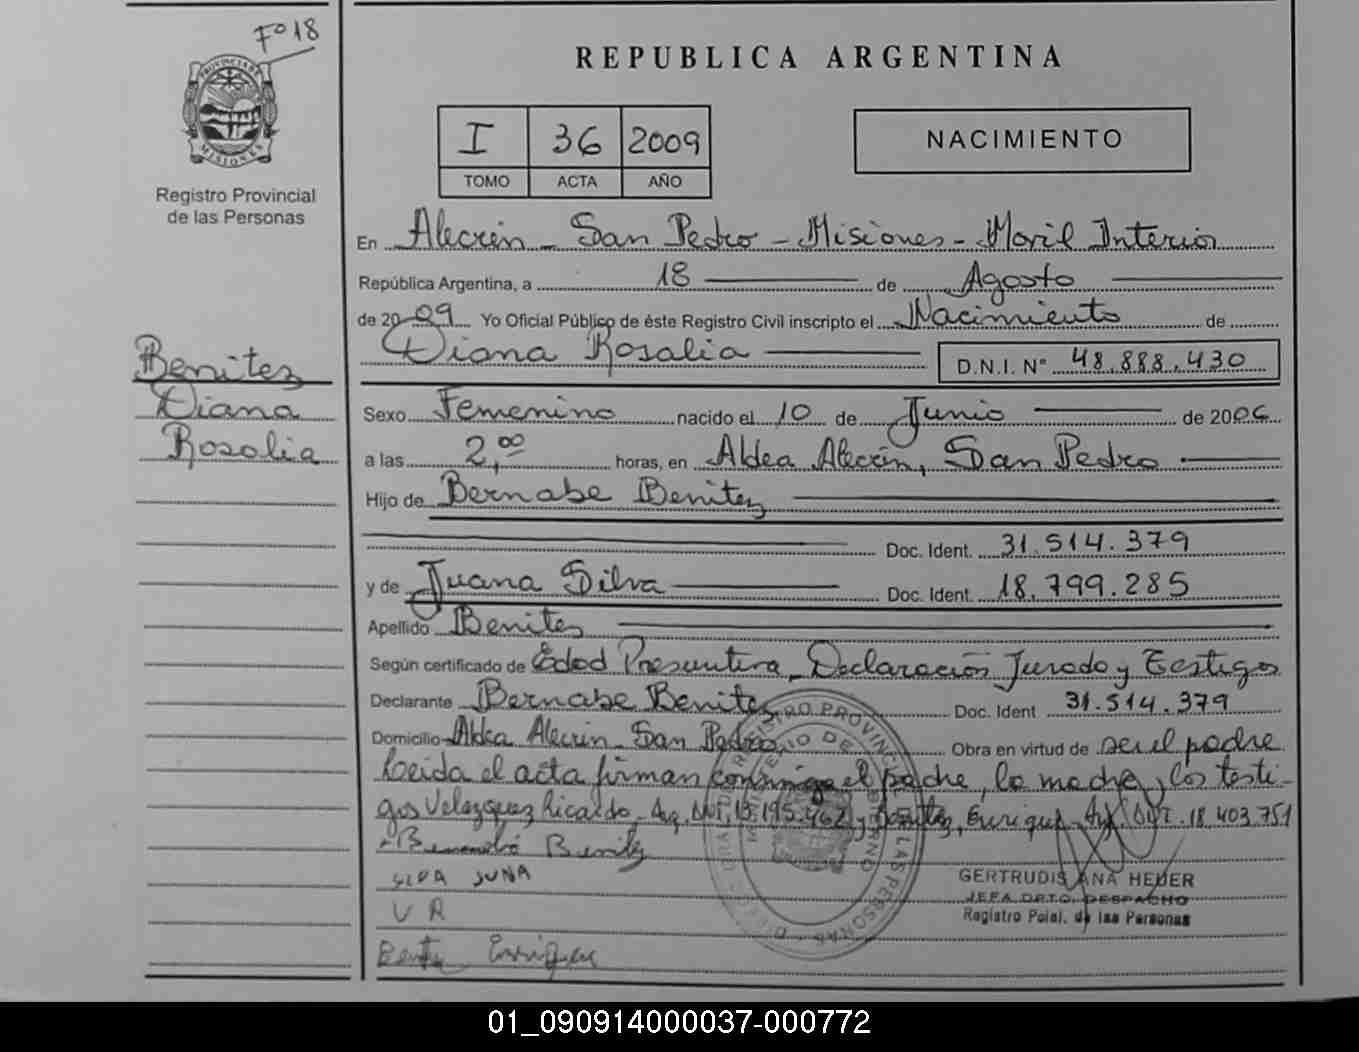 Fº 18
PROVINCIA DE
MISIONES
Registro Provincial
de las Personas
REPUBLICA ARGENTINA
I 36 2009
TOMO ACTA AÑO
NACIMIENTO
En Alecrín - San Pedro - Misiones - Movil Interior
República Argentina, a 18 de Agosto
de 2009 Yo Oficial Público de éste Registro Civil inscripto el Nacimiento de
Diana Rosalia D.N.I. Nº 48.888.430
Benitez
Diana
Rosalia
Sexo Femenino nacido el 10 de Junio de 2006
a las 2,00 horas, en Aldea Alecrín, San Pedro
Hijo de Bernabe Benitez
Doc. Ident. 31.514.379
y de Juana Silva Doc. Ident. 18.799.285
Apellido Benitez
Según certificado de Edad Presuntiva, Declaración Jurada y Testigos
Declarante Bernabe Benitez Doc. Ident 31.514.379
Domicilio Aldea Alecrin - San Pedro Obra en virtud de ser el padre
Leida el acta firman conmigo el padre, la madre y los testi-
gos Velazquez Ricardo - Arg. DNI. 13.195.462 y Benitez, Enrique - Arg. DNI. 18.403.751
Benitez
SILVA JUNA
V R
GERTRUDIS ANA HEDER
JEFA DPTO. DESPACHO
Registro Pcial. de las Personas
Benitez Enrique
01_090914000037-000772